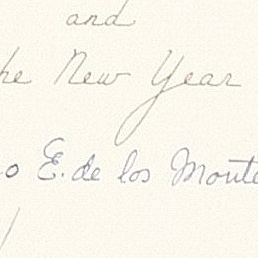 and
he New Year
o E. de los Monte